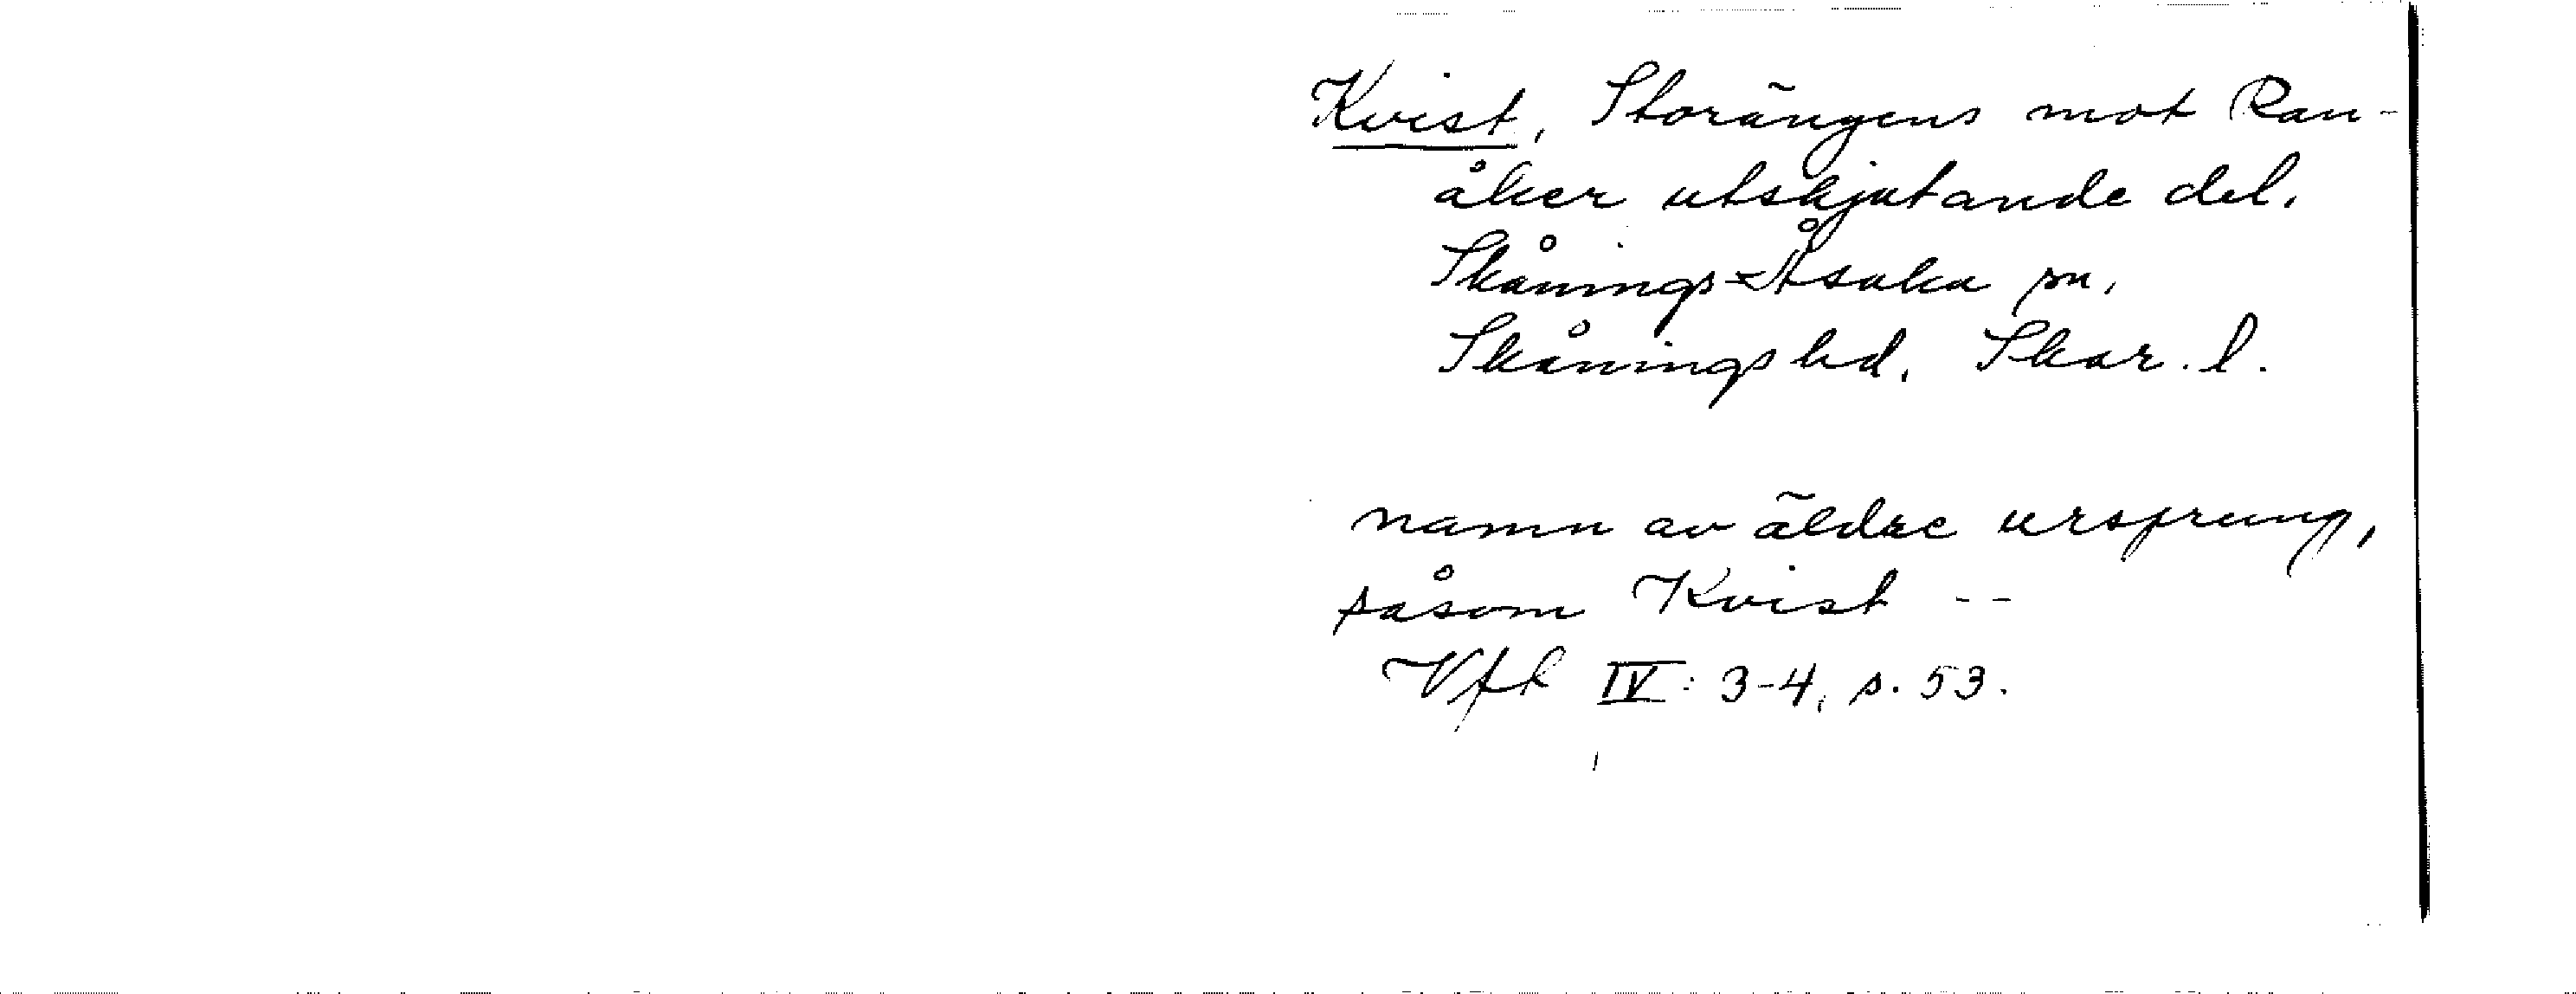 Kvist, Storängens mot Ran-
åker utskjutande del.
Skånings-Åsaka sn,
Skånings hd. Skar. l.
namn av äldre ursprung,
såsom Kvist --
Vfk IV: 3-4, s. 53.